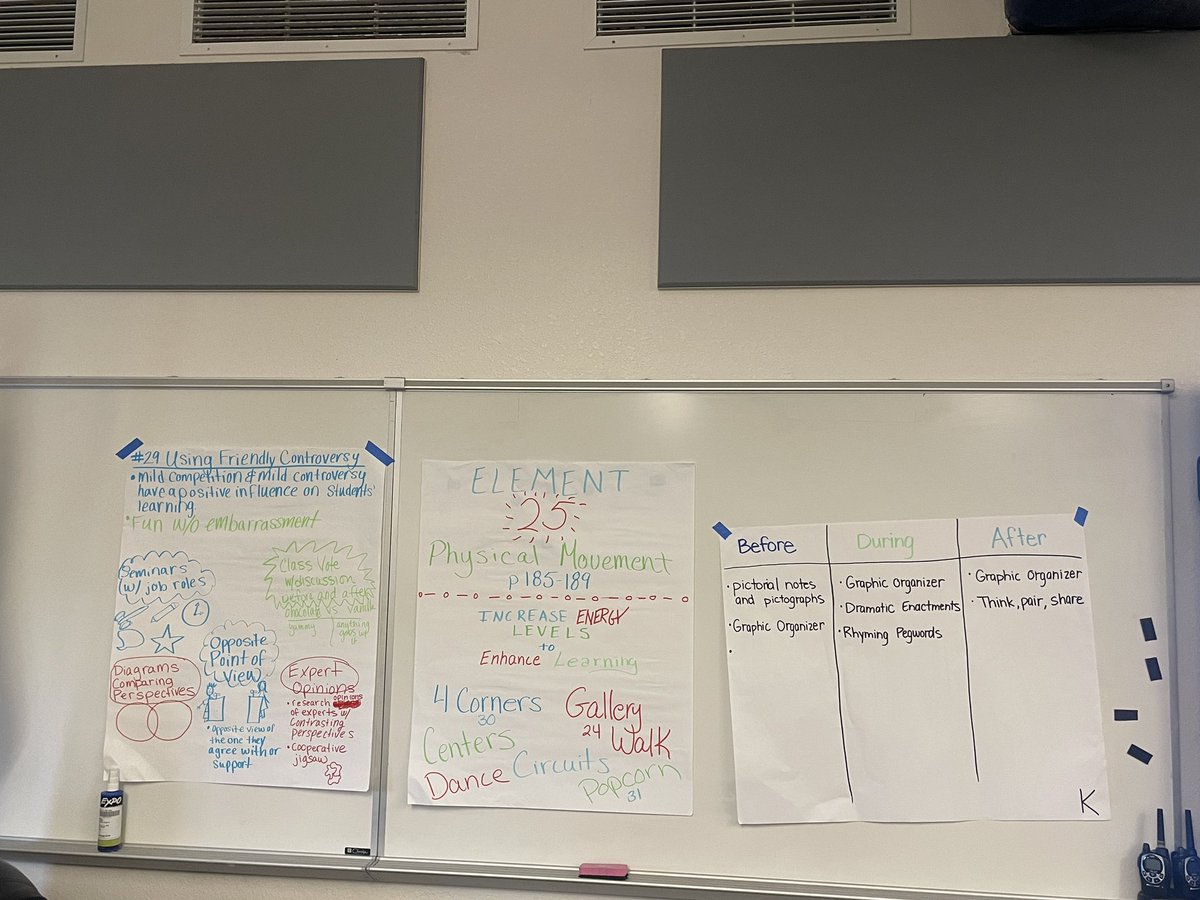 #29 Using Friendly Controversy
• Mild competition & Mild controversy
have a positive influence on Students'
learning.
• Fun w/o embarrassment
Seminars
(w/ job roles)
1
Class Vote
w/discussion
before and after
chocolate
vanilla
yummy
anything
goes w/
it
Opposite
Point of
View
• opposite view of
the one they
agree with or
support
Diagrams
Comparing
Perspectives
Expert
Opinions
• research opinions
of experts w/
Contrasting
perspectives
• Cooperative
jigsaw
EXPO
ELEMENT
25
Physical Movement
p 185-189
INCREASE ENERGY
LEVELS
to
Enhance Learning
4 Corners
30
Gallery
24 Walk
Centers
Circuits
Dance
Popcorn
31
Before
• pictorial notes
and pictographs
• Graphic Organizer
•
During
• Graphic Organizer
• Dramatic Enactments
• Rhyming Pegwords
After
• Graphic Organizer
• Think, pair, share
K